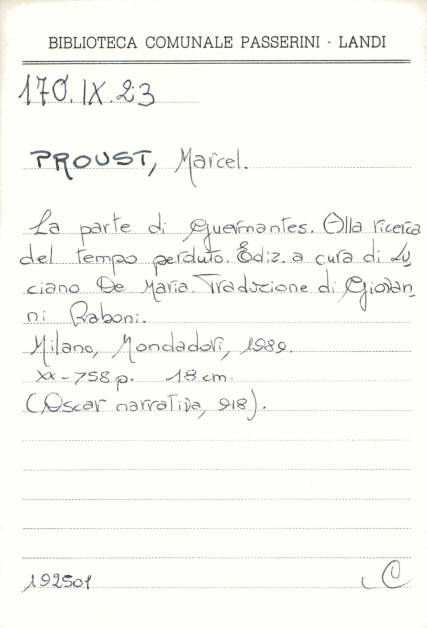 BIBLIOTECA COMUNALE PASSERINI - LANDI
170.IX.23
PROUST, Marcel.
La parte di Guermantes. Alla ricerca
del tempo perduto. Ediz. a cura di Lu
ciano De Maria. Traduzione di Giovan
ni Raboni.
Milano, Mondadori, 1989.
XX-758 p. 18 cm.
(Oscar narrativa, 918).
192501
C